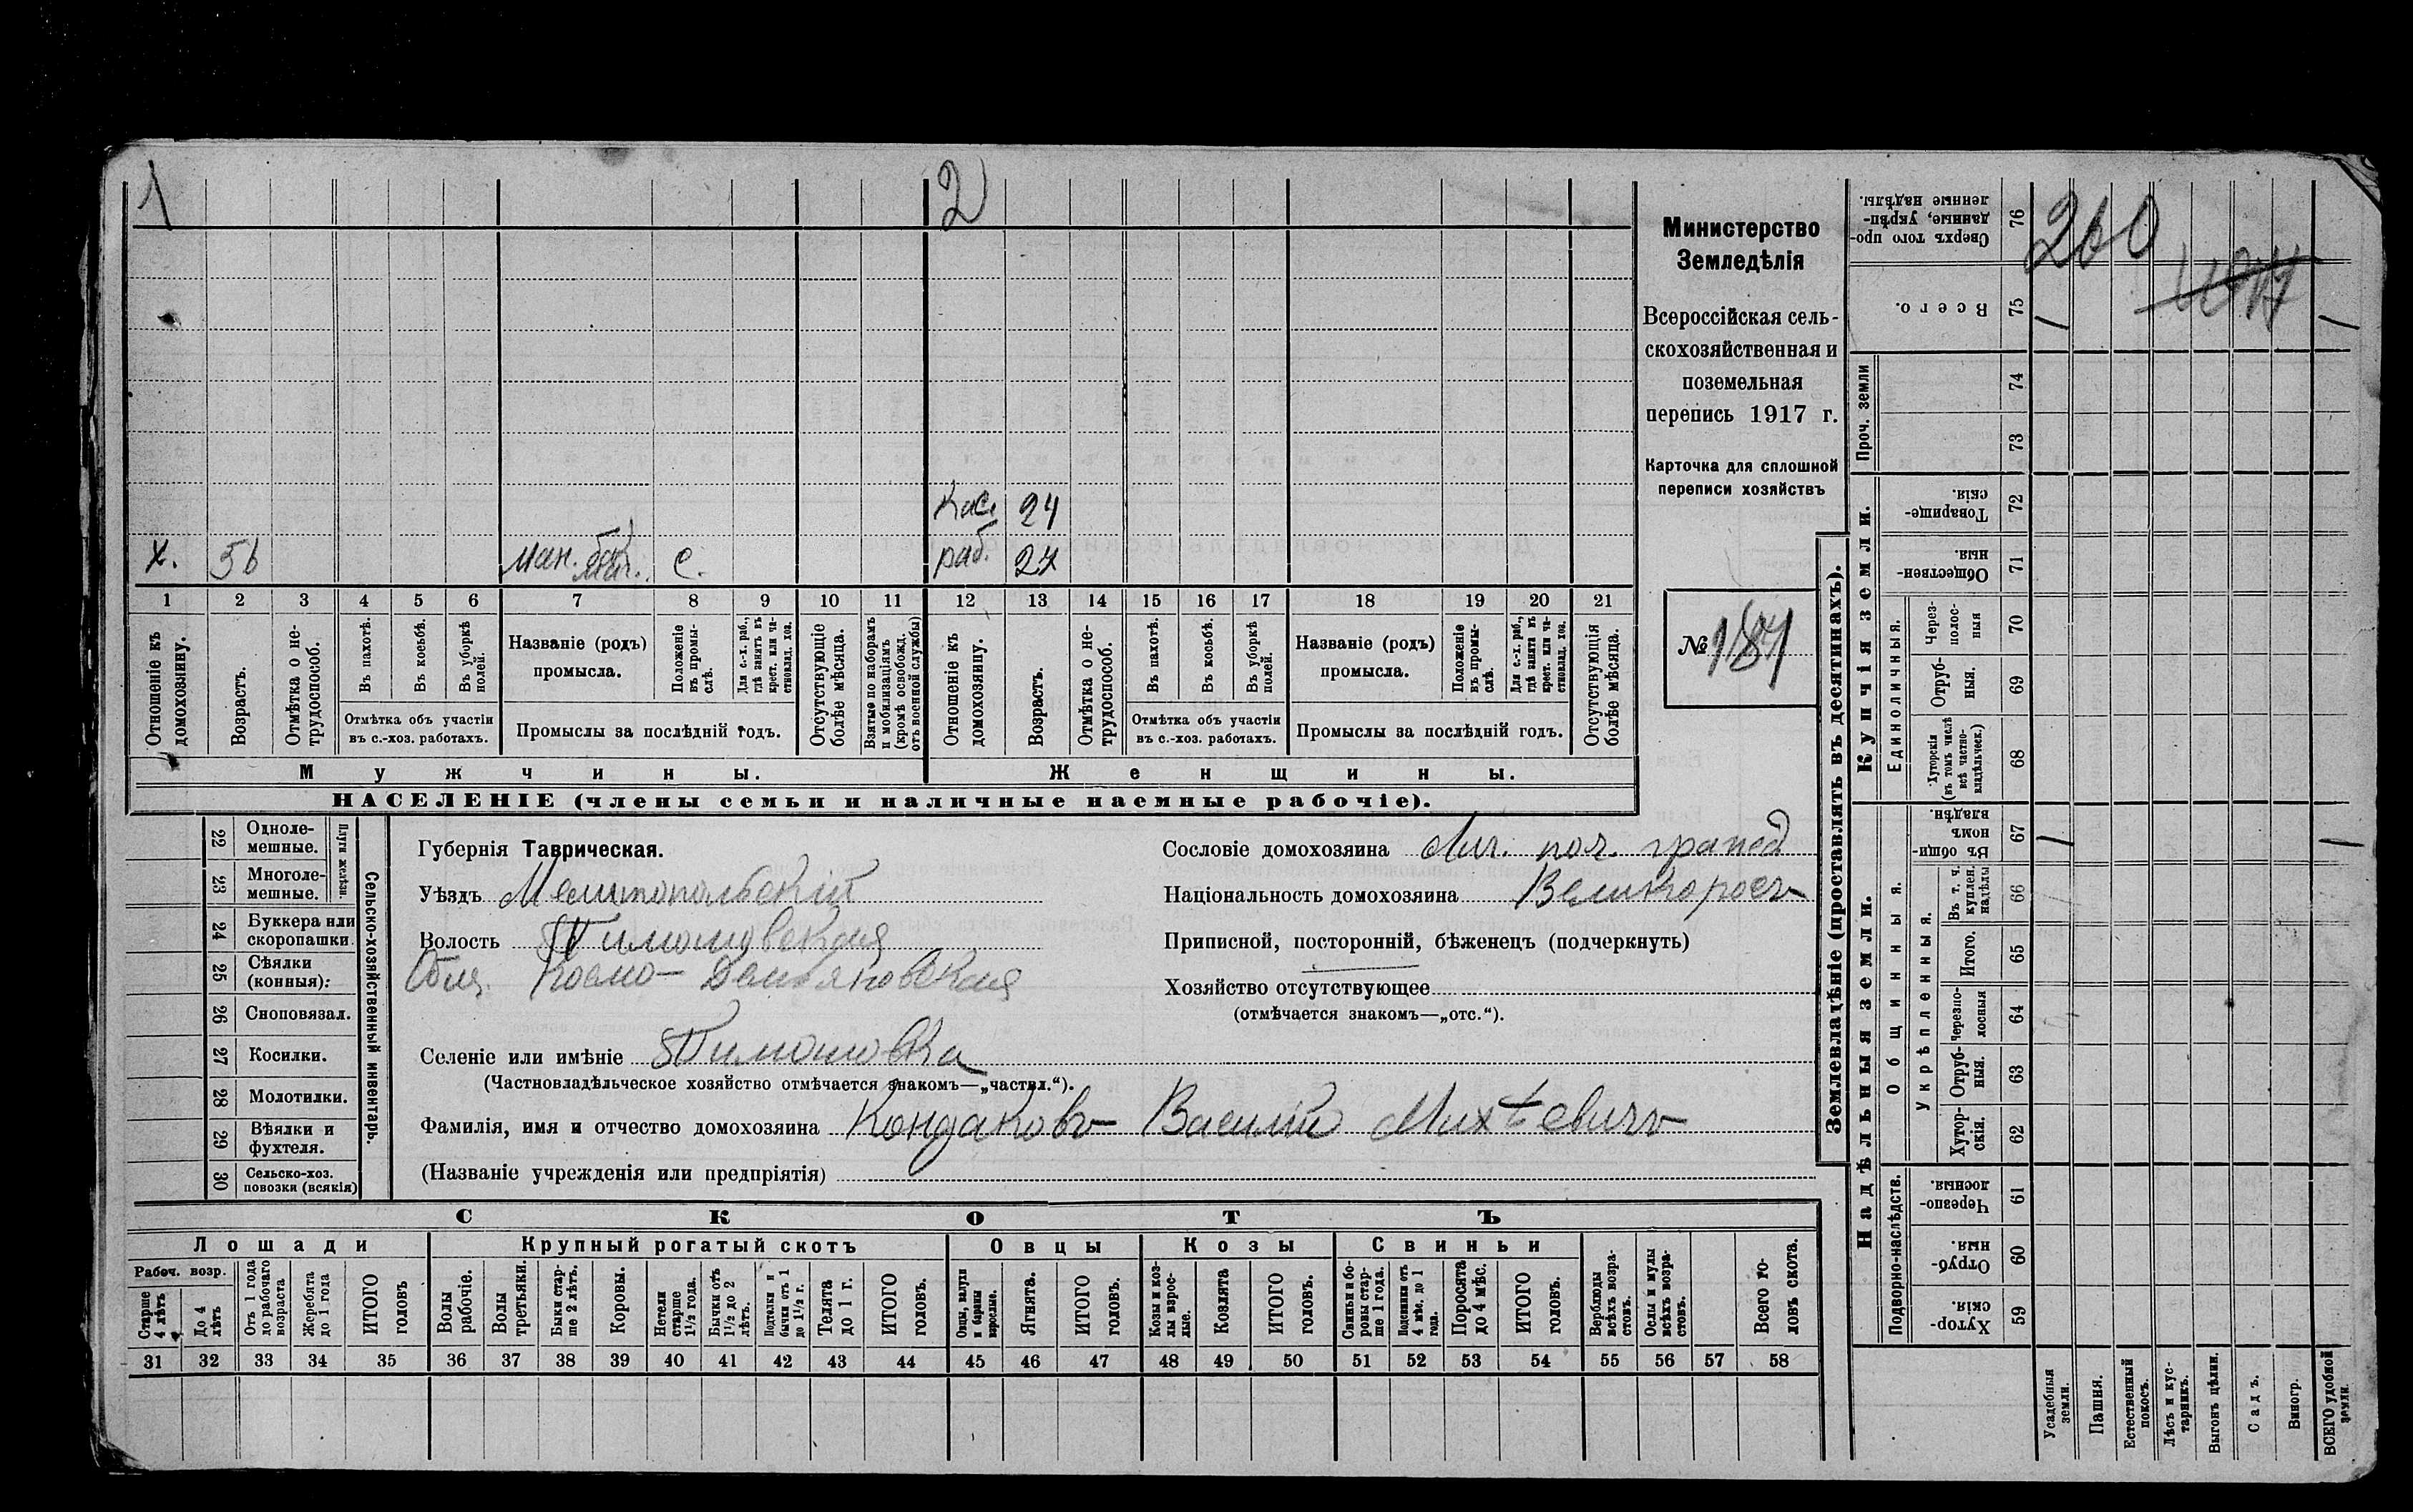 1
2
х. 56 ман. бак. с.
мак.
Кас. 24
раб. 27
1 2 3 4 5 6 7 8 9 10 11 12 13 14 15 16 17 18 19 20 21
Отношеніе къ домохозяину.
Возрастъ.
Отмѣтка о не-
трудоспособ.
Въ пахотѣ.
Въ косьбѣ.
Въ уборкѣ
полей.
Отмѣтка объ участіи
въ с.-хоз. работахъ.
Названіе (родъ)
промысла.
Положеніе
въ промы-
слѣ.
Для с.-х. раб.,
гдѣ занятъ въ
крест. или ча-
стновлад. хоз.
Промыслы за послѣдній годъ.
Отсутствующіе
болѣе мѣсяца.
Взятые по наборамъ
и мобилизаціямъ
(кромѣ освобожд.
отъ военной службы)
Отношеніе къ
домохозяину.
Возрастъ.
Отмѣтка о не-
трудоспособ.
Въ пахотѣ.
Въ косьбѣ.
Въ уборкѣ
полей.
Отмѣтка объ участіи
въ с.-хоз. работахъ.
Названіе (родъ)
промысла.
Положеніе
въ промы-
слѣ.
Для с.-х. раб.,
гдѣ занята въ
крест. или ча-
стновлад. хоз.
Промыслы за послѣдній годъ.
Отсутствующія
болѣе мѣсяца.
Мужчины.
Женщины.
НАСЕЛЕНІЕ (члены семьи и наличные наемные рабочіе).
Министерство
Земледѣлія
Всероссійская сель-
скохозяйственная и
поземельная
перепись 1917 г.
Карточка для сплошной
переписи хозяйствъ
№ 187
22 Одноле-
мешные.
23 Многоле-
мешные.
Плуги желѣзн.
24 Буккера или
скоропашки.
25 Сѣялки
(конныя):
26 Сноповязал.
27 Косилки.
28 Молотилки.
29 Вѣялки и
фухтеля.
30 Сельско-хоз.
повозки (всякія)
Сельско-хозяйственный инвентарь.
Губернія Таврическая.
Уѣздъ Мелитопольскій
Волость Тимошовская
Общ. Козмо-Демьяновская
Селеніе или имѣніе Тимошовка
(Частновладѣльческое хозяйство отмѣчается знакомъ—„частвл.“).
Фамилія, имя и отчество домохозяина Кондаковъ Василій Михѣевичъ
(Названіе учрежденія или предпріятія)
Сословіе домохозяина Лич. поч. гражд
Національность домохозяина Великороссъ
Приписной, посторонній, бѣженец (подчеркнуть)
Хозяйство отсутствующее
(отмѣчается знакомъ—„отс.“).
СКОТЪ
Лошади
Крупный рогатый скотъ
Овцы
Козы
Свиньи
Рабоч. возр.
Старше
4 лѣтъ
До 4
лѣтъ
Отъ 1 года
до рабочаго
возраста
Жеребята
до 1 года
ИТОГО
головъ
Волы
рабочіе.
Волы
третьяки.
Быки стар-
ше 2 лѣтъ.
Коровы.
Нетели
старше
1½ года.
Бычки отъ
1½ до 2
лѣтъ.
Подтелки и
бычки отъ 1
до 1½ г.
Телята
до 1 г.
ИТОГО
головъ.
Овцы, валухи
и бараны
взрослые.
Ягнята.
ИТОГО
головъ.
Козы и коз-
лы взрос-
лые.
Козлята
ИТОГО
головъ.
Свиньи и бо-
ровы стар-
ше 1 года.
Подсвинки отъ
4 мѣс. до 1
года.
Поросята
до 4 мѣс.
ИТОГО
головъ.
Верблюды
всѣхъ возра-
стовъ.
Ослы и мулы
всѣхъ возра-
стовъ.
Всего го-
ловъ скота.
31 32 33 34 35 36 37 38 39 40 41 42 43 44 45 46 47 48 49 50 51 52 53 54 55 56 57 58
Землевладѣніе (проставлять въ десятинахъ).
Надѣльныя земли.
Купчія земли.
Проч. земли
Подворно-наслѣдств.
Общинныя.
Укрѣпленныя.
Единоличныя.
Сверхъ того про-
данные, укрѣп-
ленные надѣлы. 76
Всего. 75
74
73
Товарище-
скія. 72
Обществен-
ныя. 71
Через-
полос-
ныя 70
Отруб-
ныя. 69
Хуторскія
(въ томъ числѣ
всѣ частно-
владѣльческ.) 68
Въ общи-
номъ
владѣн. 67
Въ т. ч.
куплен.
надѣлы 66
Итого. 65
Черезпо-
лосныя 64
Отруб-
ныя. 63
Хутор-
скія. 62
Черезпо-
лосныя. 61
Отруб-
ныя. 60
Хутор-
скія. 59
260
Усадебныя
земли.
Пашня.
Естественный
покосъ.
Лѣсъ и кус-
тарникъ.
Выгонъ цѣлин.
Садъ.
Виногр.
ВСЕГО удобной
земли.